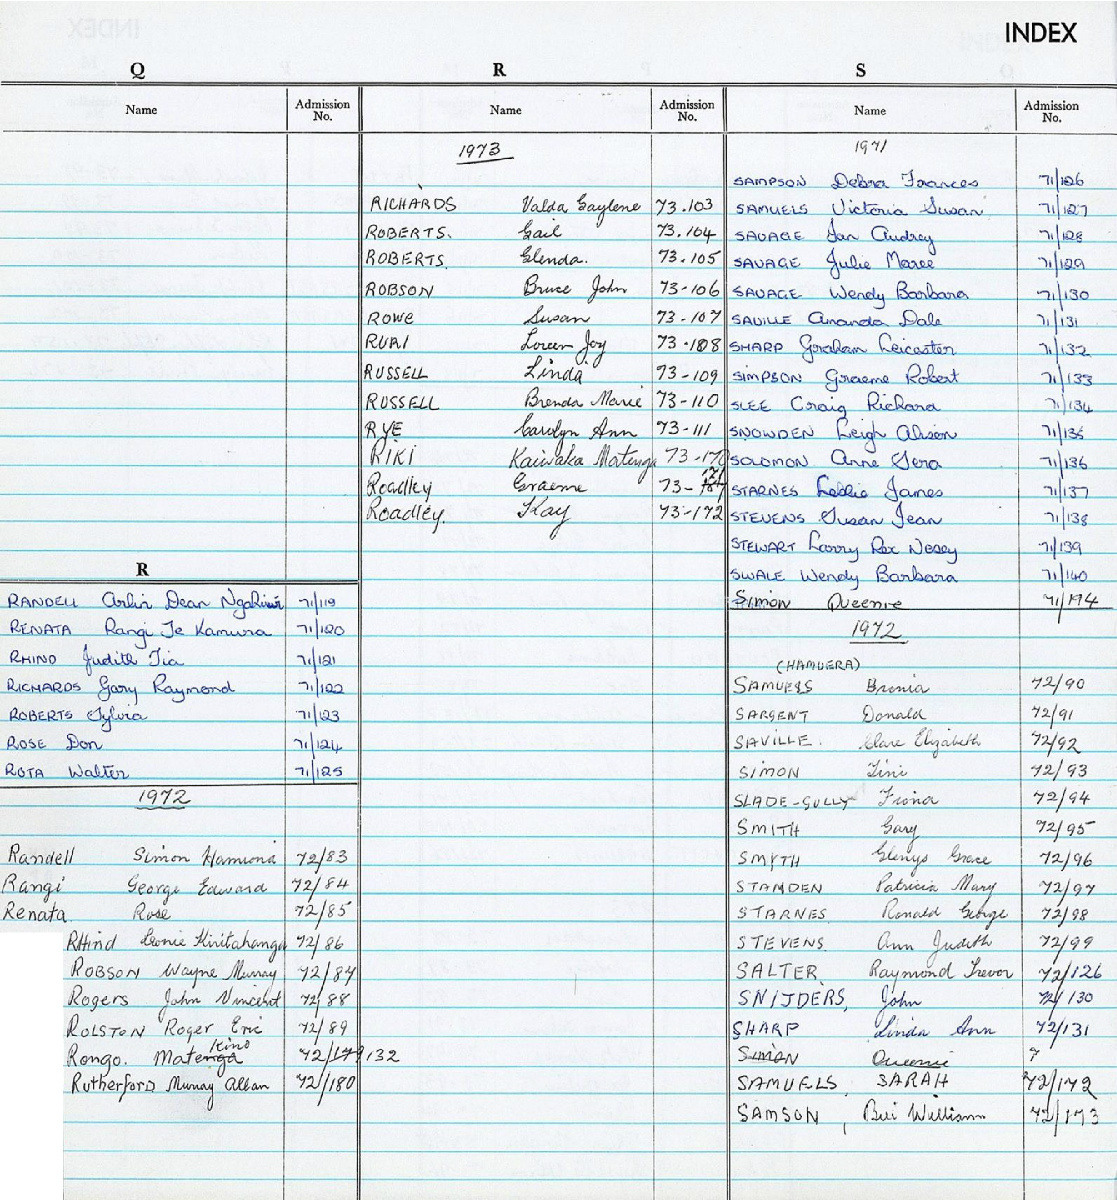 INDEX
Q
Name Admission No.
R
RANDELL Arlin Dean Ngahiwi 71/119
RENATA Rangi Te Kamura 71/120
RHIND Judith Tia 71/121
RICHARDS Gary Raymond 71/122
ROBERTS Sylvia 71/123
ROSE Don 71/124
ROTA Walter 71/125
1972
Randell Simon Hamiona 72/83
Rangi George Edward 72/84
Renata Rose 72/85
RHind Leonie Kiritahanga 72/86
ROBSON Wayne Murray 72/87
Rogers John Vincent 72/88
ROLSTON Roger Eric 72/89
Kino
Rongo. Matenga 72/179 132
RutherforD Murray Allan 72/180
R
Name Admission No.
1973
RICHARDS Valda Gaylene 73.103
ROBERTS. Gail 73.104
ROBERTS. Glenda. 73.105
ROBSON Bruce John 73-106
ROWE Susan 73-107
RURI Loreen Joy 73-108
RUSSELL Linda 73-109
RUSSELL Brenda Marie 73-110
RYE Carolyn Ann 73-111
RIKI Kaiwaka Matenga 73-170
171
Roadley Graeme 73-
Roadley. Kay 73-172
S
Name Admission No.
1971
SAMPSON Debra Frances 71/126
SAMUELS Victoria Susan 71/127
SAVAGE Jan Audrey 71/128
SAVAGE Julie Maree 71/129
SAVAGE Wendy Barbara 71/130
SAVILLE Amanda Dale 71/131
SHARP Graham Leicester 71/132
SIMPSON Graeme Robert 71/133
SLEE Craig Richard 71/134
SNOWDEN Leigh Alison 71/135
SOLOMON Anne Tera 71/136
STARNES Leslie James 71/137
STEVENS Susan Jean 71/138
STEWART Larry Rex Nesey 71/139
SWALE Wendy Barbara 71/140
SIMON Queenie 71/194
1972
(HAMUERA)
SAMUELS Bronia 72/90
SARGENT Donald 72/91
SAVILLE. Clare Elizabeth 72/92
SIMON Tini 72/93
SLADE-GULLY Fiona 72/94
SMITH Gary 72/95
SMYTH Glenys Grace 72/96
STAMDEN Patricia Mary 72/97
STARNES Ronald George 72/98
STEVENS Ann Judith 72/99
SALTER Raymond Trevor 72/126
SNIJDERS, John 72/130
SHARP Linda Ann 72/131
SIMON Queenie ?
SAMUELS SARAH 72/172
SAMSON, Bui William 72/173